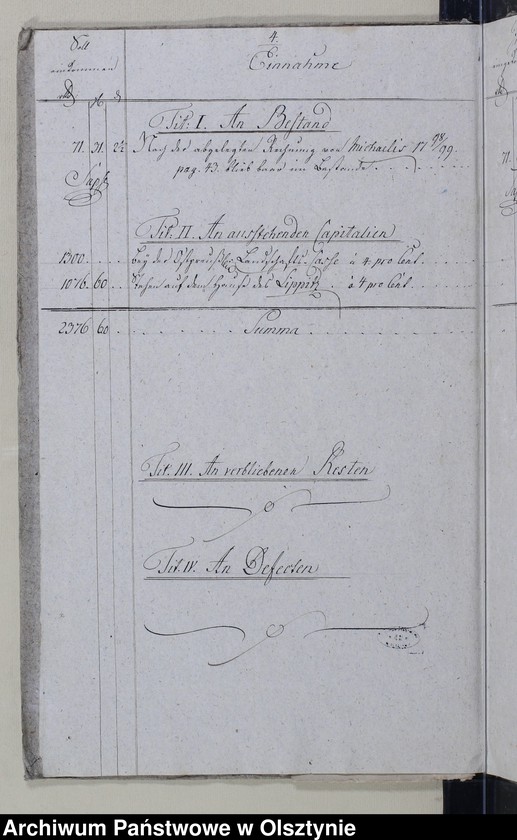 4.
Soll
einkommen
Einnahme
Tit: I. An Bestand
71. 31. 2½ Nach der abgelegten Rechnung von Michaelis 17 98/99.
pag. 43. blieb baar im Bestande
Tit: II. An ausstehenden Capitalien
1300. Bey der Ostpreußschen Landschafts-Casse à 4. pro Cent.
1076. 60. Stehen auf dem Hause des Lippitz à 4 pro Cent.
2376 60 Summa
Tit. III. An verbliebenen Resten
Tit. IV. An Defecten
Archiwum Państwowe w Olsztynie